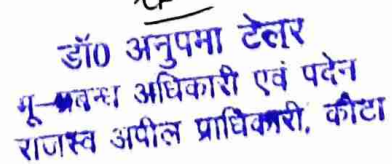 डॉ0 अनुपमा टेलर
भू-प्रबन्ध अधिकारी एवं पदेन
राजस्व अपील प्राधिकारी, कोटा